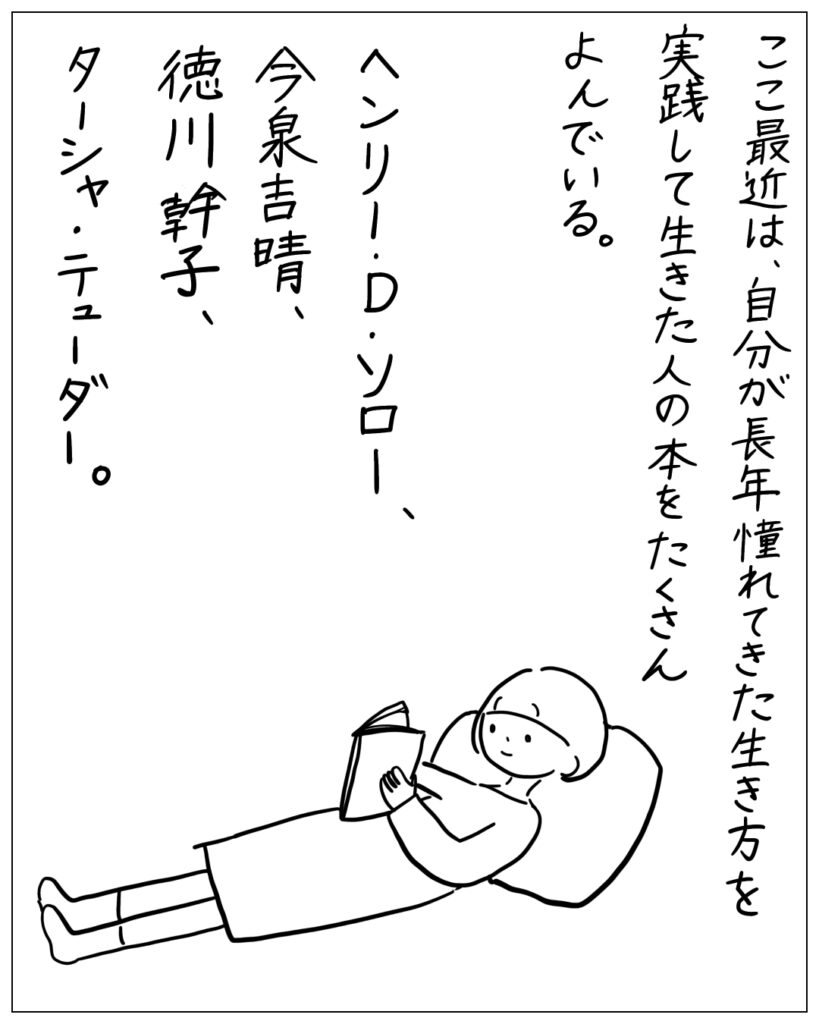 ここ最近は、自分が長年憧れてきた生き方を
実践して生きた人の本をたくさん
よんでいる。
ヘンリー・D・ソロー、
今泉吉晴、
徳川幹子、
ターシャ・テューダー。